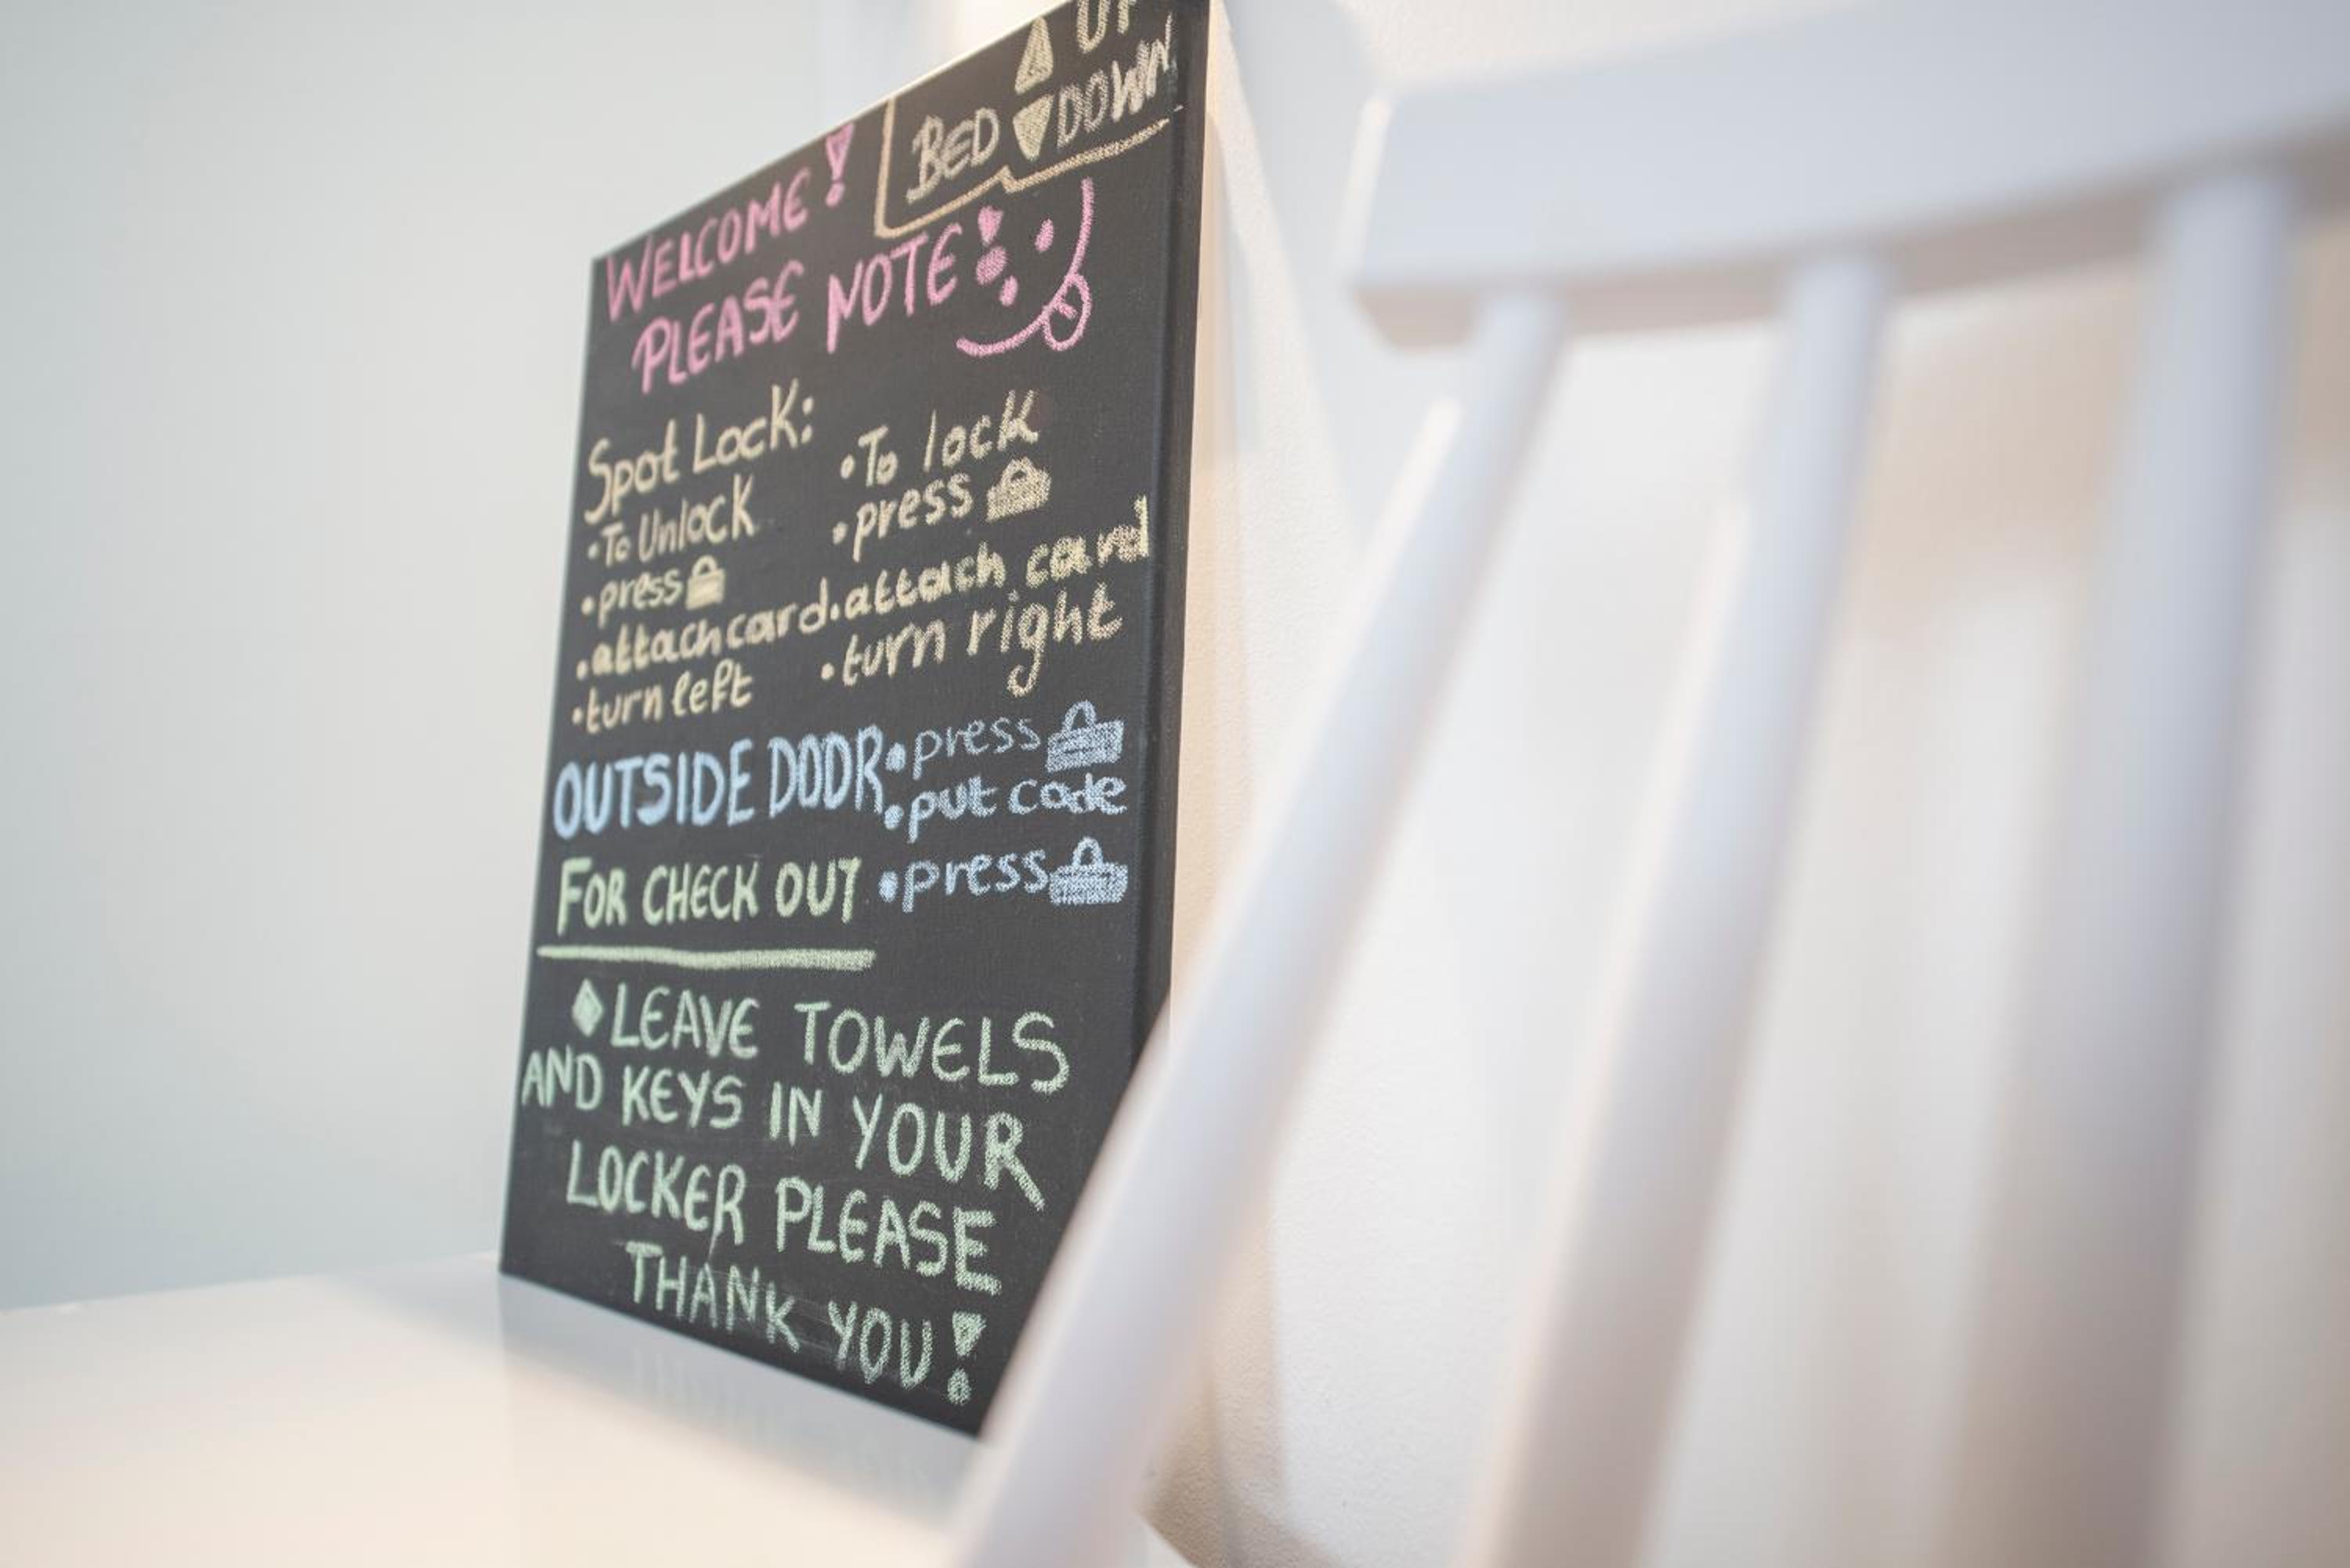 UP
BED DOWN
WELCOME!
PLEASE NOTE!
Spot Lock:
• To Unlock
• press
• attach card
• turn left
• To lock
• press
• attach card
• turn right
OUTSIDE DOOR
• press
• put code
• press
FOR CHECK OUT
LEAVE TOWELS
AND KEYS IN YOUR
LOCKER PLEASE
THANK YOU!